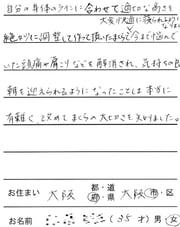 自分の身体のラインに合わせて適切な高さを
大変快適に寝られるように
なりました
絶妙に調整して作って頂いたまくらで今まで悩んで
いた頭痛や肩こりなどを解消され、気持ちの良い
朝を迎えられるようになったことは本当に
有難く、改めてまくらの大切さを知りました。
お住まい 大阪 都・道 府・県 大阪 市・区
お名前 (35才) 男・女